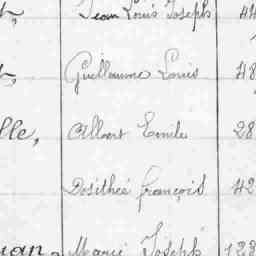 Jean Louis Joseph 44
Guillaume Louis 48
lle, Albert Emile 28
Dosithée françois 42
uan, Marie Joseph 128